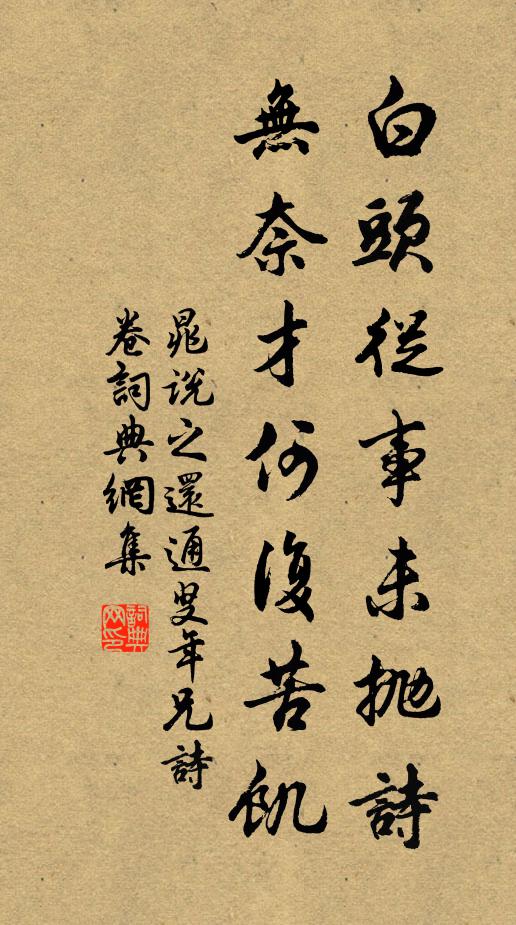 白頭從事未抛詩
無奈才何復苦飢
晁說之還通叟年兄詩
卷詞典網集
詞典
网印